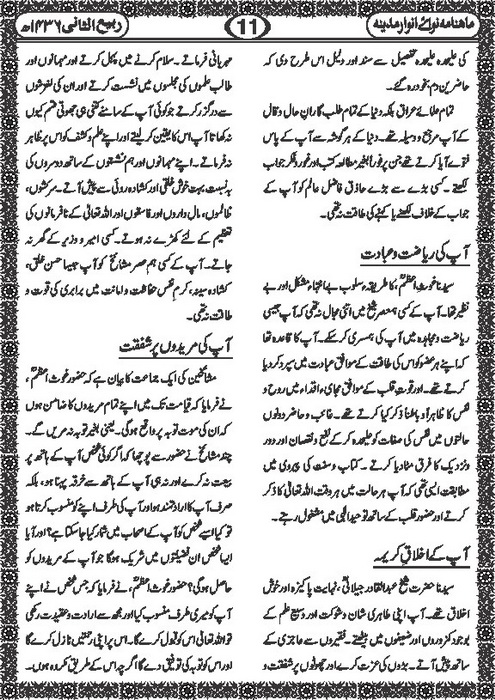 ماہنامہ نوائے انوار مدینہ
11
ربیع الثانی ۱۴۳۶ھ
کی علیحدہ علیحدہ تفصیل سے سند اور دلیل اس طرح دی کہ
حاضرین دم بخود رہ گئے۔
تمام علمائے عراق بلکہ دنیا کے تمام طلب گاران حال و قال
کے آپ مرجع و وسیلہ تھے۔ دنیا کے ہر گوشہ سے آپ کے پاس
فتوے آیا کرتے تھے جن پر فوراً بغیر مطالعہ کتب اور غور و فکر جواب
لکھتے۔ کسی بڑے سے بڑے حاذق فاضل عالم کو آپ کے
جواب کے خلاف لکھنے یا کہنے کی طاقت نہ تھی۔
آپ کی ریاضت و عبادت
سیدنا غوث اعظمؒ، کا طریقہ سلوب بے انتہا مشکل اور بے
نظیر تھا۔ آپ کے کسی ہمعصر شیخ میں اتنی مجال نہ تھی کہ آپ جیسی
ریاضت و مجاہدہ میں آپ کی ہمسری کر سکے۔ آپ کا قاعدہ تھا
کہ اپنے ہر عضو کو اس کی طاقت کے موافق عبادت میں سپرد کر دیا
کرتے تھے۔ اور قوت قلب کے موافق مجاری، اقتداء میں روح و
نفس کا ظاہراً و باطناً ذکر کیا کرتے تھے۔ غائب و حاضر دونوں
حالتوں میں نفس کی صفات کو علیحدہ کر کے نفع و نقصان اور دور
و نزدیک کا فرق مٹا دیا کرتے۔ کتاب و سنت کی پیروی میں
مطابقت ایسی تھی کہ آپ ہر حالت میں ہر وقت اللہ تعالیٰ کا ذکر
کرتے اور حضور قلب کے ساتھ توحید الٰہی میں مشغول رہتے۔
آپ کے اخلاق کریمہ
سیدنا حضرت شیخ عبدالقادر جیلانیؒ، نہایت پاکیزہ اور خوش
اخلاق تھے۔ آپ اپنی ظاہری شان و شوکت اور وسیع علم کے
باوجود کمزوروں اور ضعیفوں میں بیٹھتے۔ فقیروں سے عاجزی کے
ساتھ پیش آتے۔ بڑوں کی عزت کرتے اور چھوٹوں پر شفقت و
مہربانی فرماتے۔ سلام کرنے میں پہل کرتے اور مہمانوں اور
طالب علموں کی مجلسوں میں نشست کرتے اور ان کی لغزشوں
سے درگزر کرتے جو کوئی آپ کے سامنے کتنی ہی جھوٹی قسم کیوں
نہ کھاتا آپ اس کا یقین کر لیتے اور اپنے علم و کشف کو اس پر ظاہر
نہ فرماتے۔ اپنے مہمانوں اور ہم نشستوں کے ساتھ دوسروں کی
بہ نسبت بہت خوش خلقی اور کشادہ روئی سے پیش آتے۔ سرکشوں،
ظالموں، مال داروں اور فاسقوں اور اللہ تعالیٰ کے نافرمانوں کی
تعظیم کے لئے کھڑے نہ ہوتے۔ کسی امیر و وزیر کے گھر نہ
جاتے۔ آپ کے کسی ہم عصر مشائخ کو آپ جیسا حسن خلق،
کشادہ سینہ، کرم نفس حفاظت و امانت میں برابری کی قوت و
طاقت نہ تھی۔
آپ کی مریدوں پر شفقت
مشائخین کی ایک جماعت کا بیان ہے کہ حضور غوث اعظمؒ،
نے فرمایا کہ قیامت تک میں اپنے تمام مریدوں کا ضامن ہوں
کہ ان کی موت توبہ پر واقع ہو گی۔ یعنی بغیر توبہ نہ مریں گے۔
چند مشائخ نے حضور سے پوچھا کہ اگر کوئی شخص آپ کے ہاتھ پر
بیعت نہ کرے اور نہ ہی آپ کے ہاتھ سے خرقہ پہنا ہو، بلکہ
صرف آپ کا ارادتمند ہو اور آپ کی طرف اپنے کو منسوب کرتا ہو
تو کیا ایسے شخص کو آپ کے اصحاب میں شمار کیا جا سکتا ہے؟ اور آیا
ایسا شخص ان فضیلتوں میں شریک ہو گا جو آپ کے مریدوں کو
حاصل ہو گی؟ حضور غوث اعظمؒ، نے فرمایا کہ جس شخص نے اپنے
آپ کو میری طرف منسوب کیا اور مجھ سے ارادت و عقیدت رکھی
تو اللہ تعالیٰ اس کو قبول کرے گا۔ اس پر اپنی رحمتیں نازل کرے گا
اور اس کو توبہ کی توفیق دے گا اگرچہ اس کے طریق مکروہ ہوں۔